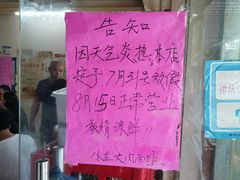 告知
因天气炎热,本店
定于7月31号放假
8月15日正常营业
敬请谅解!!